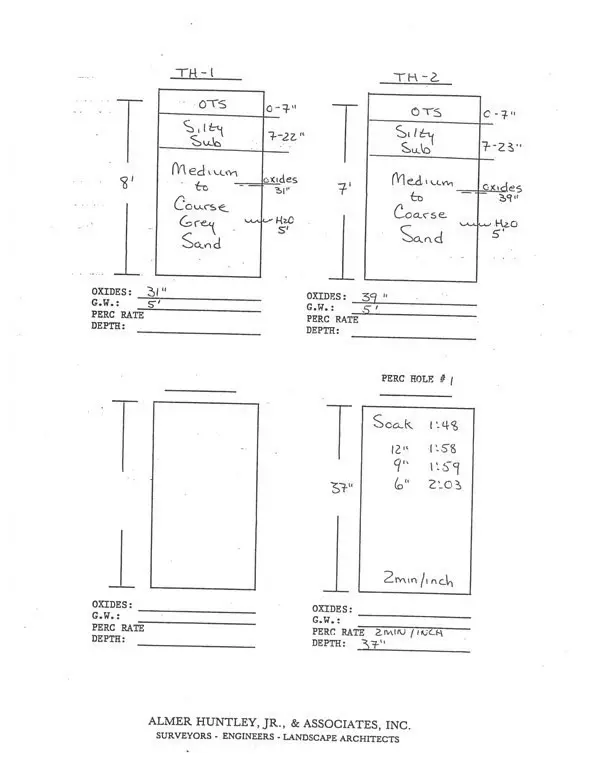 TH-1
OTS 0-7"
Silty Sub 7-22"
8'
Medium to Course Grey Sand
oxides 31"
H2O 5'
OXIDES: 31"
G.W.: 5'
PERC RATE
DEPTH:
TH-2
OTS 0-7"
Silty Sub 7-23"
7'
Medium to Coarse Sand
oxides 39"
H2O 5'
OXIDES: 39"
G.W.: 5'
PERC RATE
DEPTH:
OXIDES:
G.W.:
PERC RATE
DEPTH:
PERC HOLE #1
Soak 1:48
12" 1:58
9" 1:59
6" 2:03
37"
2min/inch
OXIDES:
G.W.:
PERC RATE 2MIN/INCH
DEPTH: 37"
ALMER HUNTLEY, JR., & ASSOCIATES, INC.
SURVEYORS - ENGINEERS - LANDSCAPE ARCHITECTS